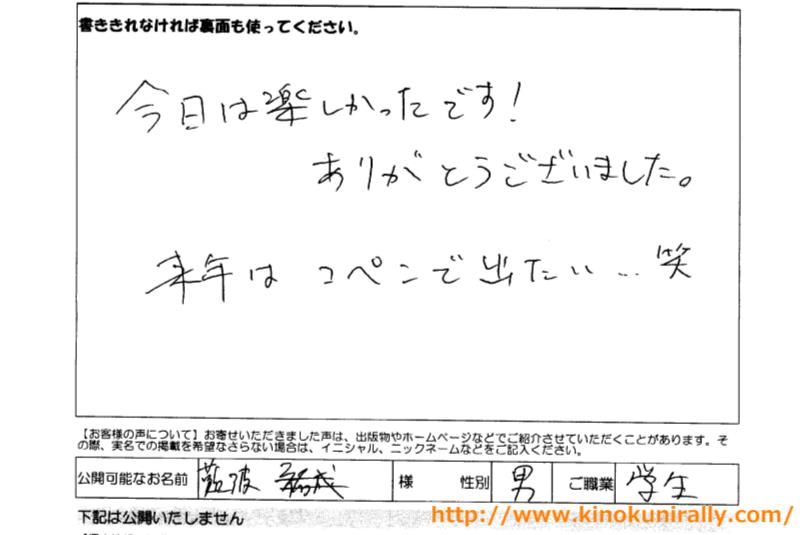 書ききれなければ裏面も使ってください。
今日は楽しかったです!
ありがとうございました。
来年は コペンで出たい… 笑
【お客様の声について】お寄せいただきました声は、出版物やホームページなどでご紹介させていただくことがあります。そ
の際、実名での掲載を希望なさらない場合は、イニシャル、ニックネームなどをご記入ください。
公開可能なお名前 難波 様 性別 男 ご職業 学生
下記は公開いたしません
http://www.kinokunirally.com/